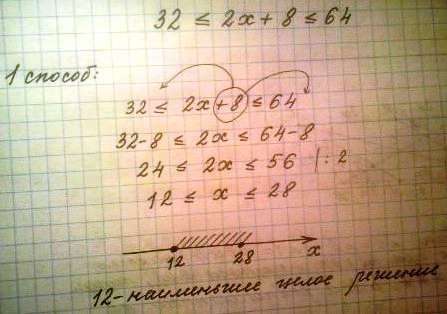 32 ≤ 2x + 8 ≤ 64
1 способ:
32 ≤ 2x + 8 ≤ 64
32-8 ≤ 2x ≤ 64-8
24 ≤ 2x ≤ 56 | : 2
12 ≤ x ≤ 28
12 28 x
12 - наименьшее целое решение